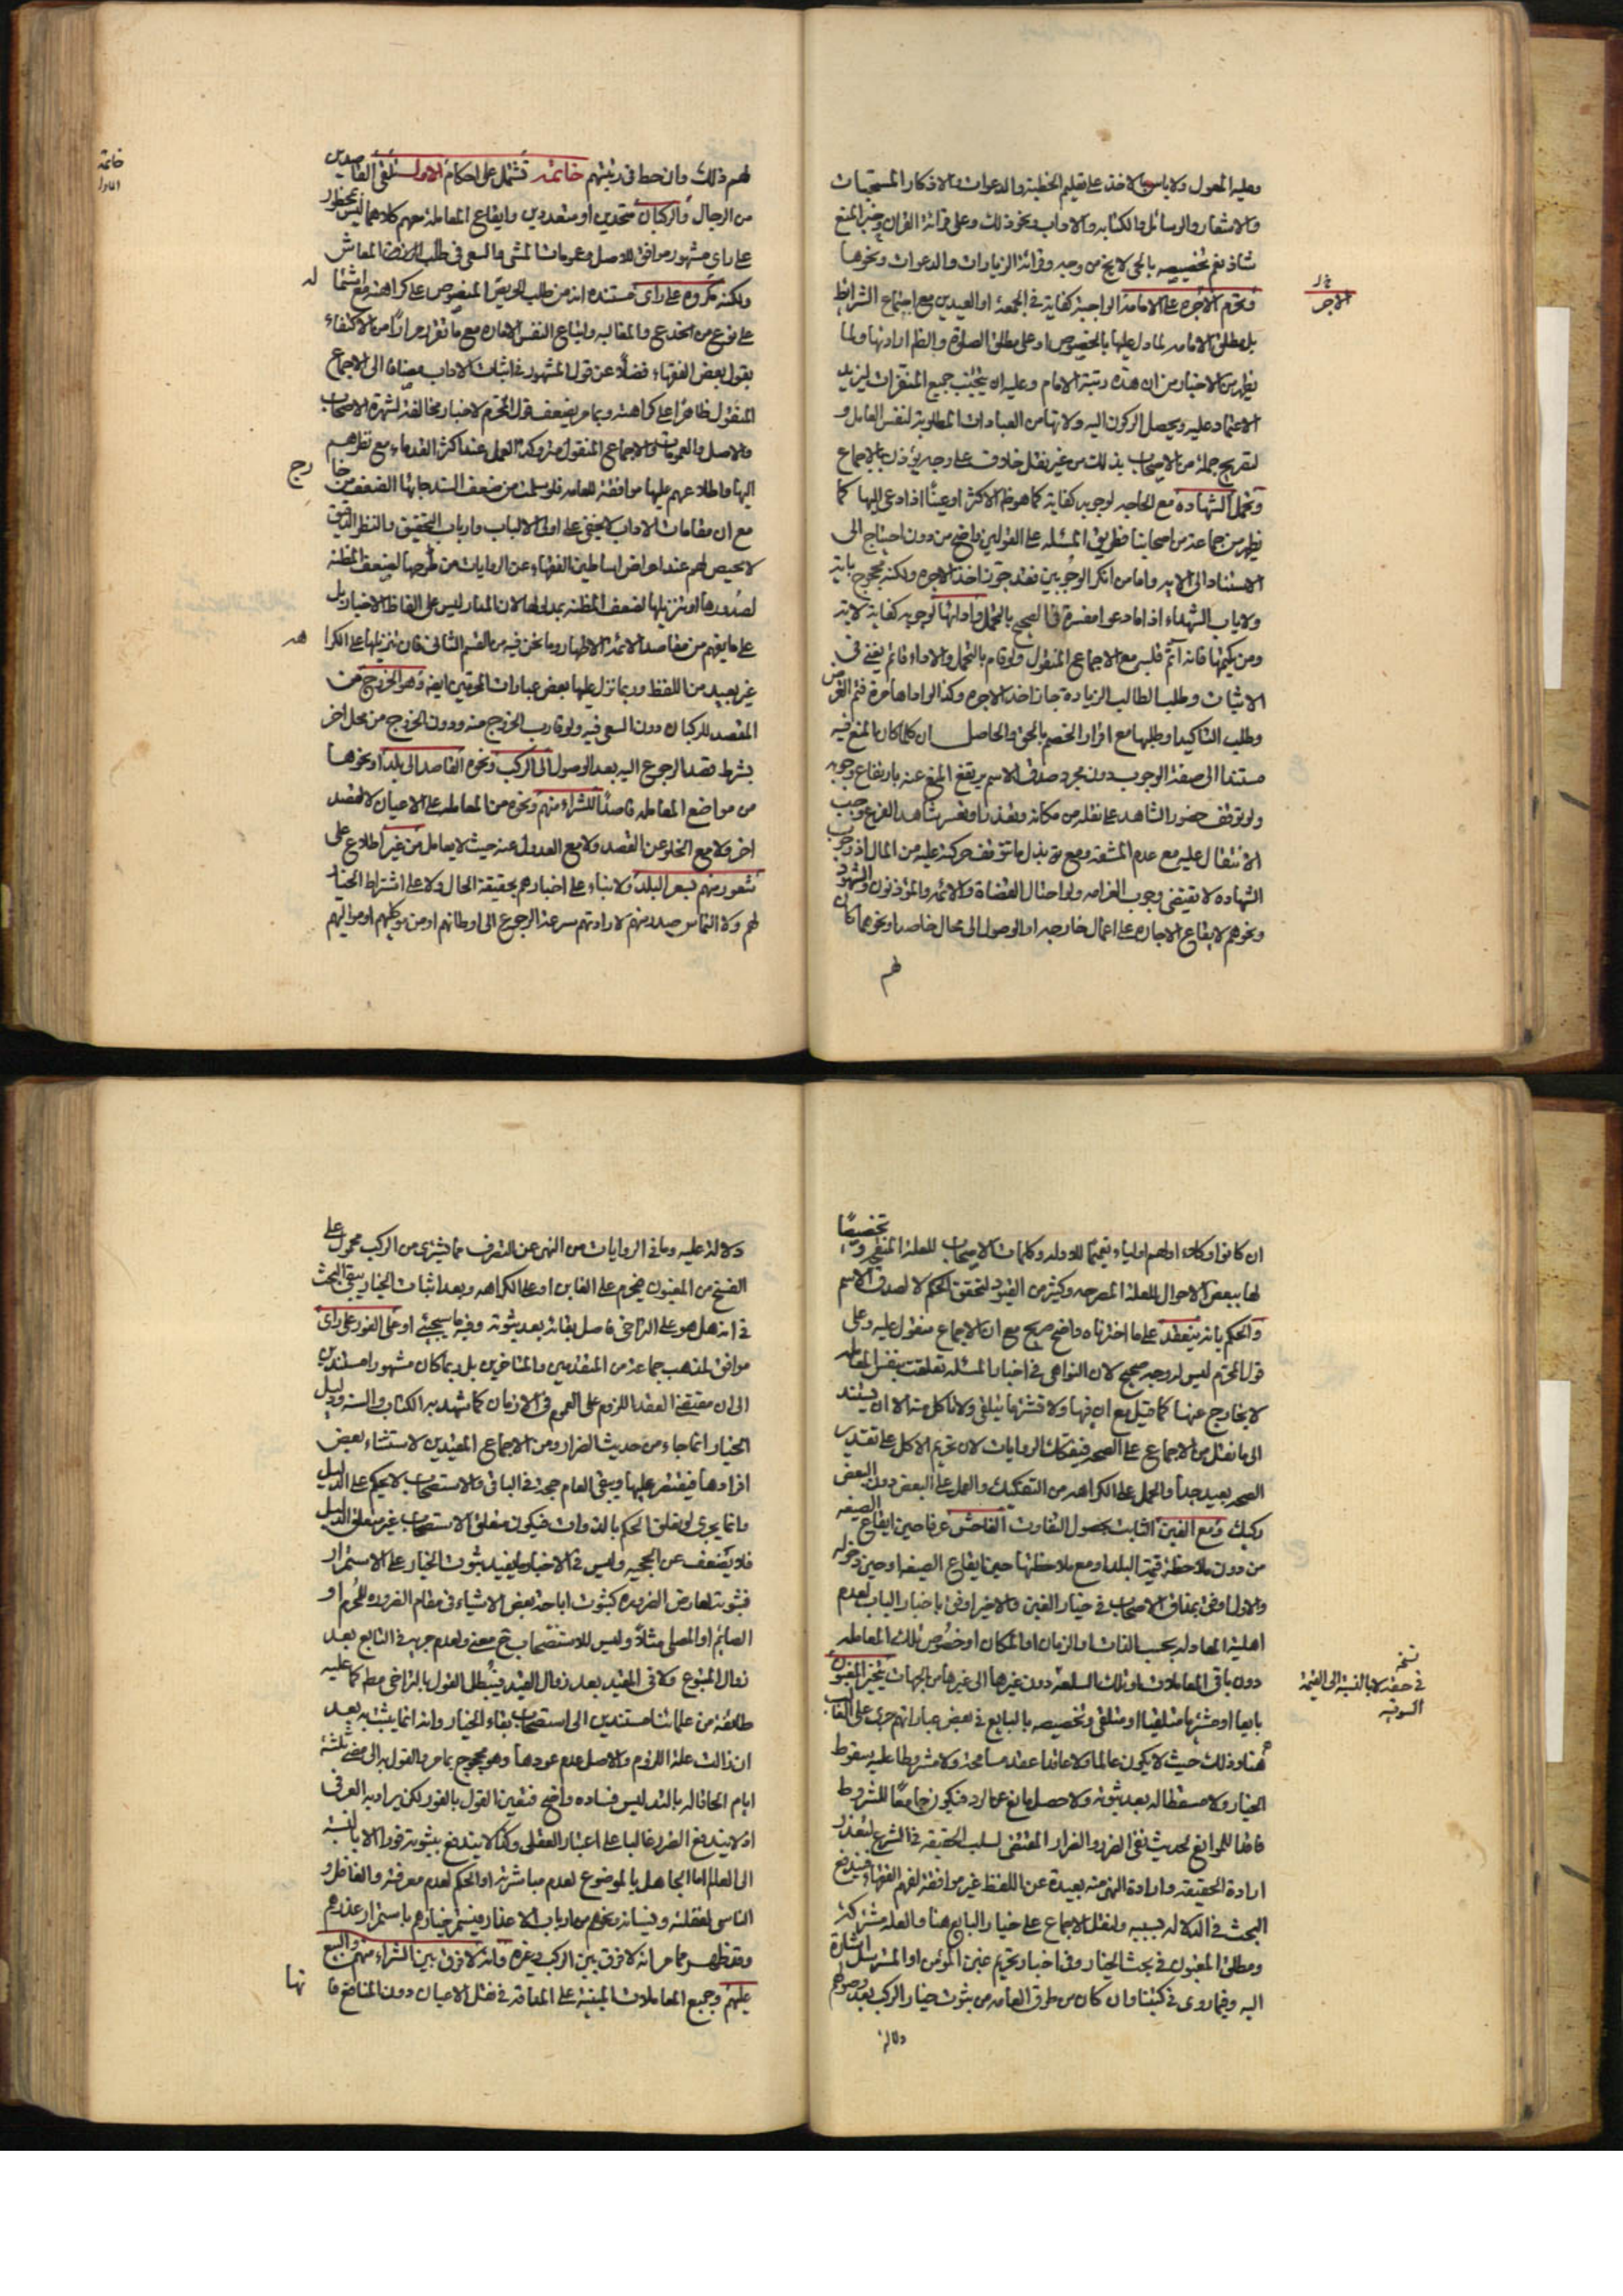 وعليه المعول ولا باس بالاخذ على تعليم الخطبة والدعوات والاذكار المستحبات
والاشعار والرسائل والكتابه والاداب ونحو ذلك وعلى قرائة القران وخبر المنع
شاذ نعم تخصيصه بالحى لا يخ من وجه وقرائة الزيارات والدعوات ونحوها
وتحرم الاجرة على الامامة الواجبة كفاية في الجمعة او العيدين مع اجتماع الشرائط
بل مطلق الامامه لما دل عليها بالخصوص او على مطلق الصلوة والظ ارادتها ولما
يظهر من الاخبار من ان هذه رتبة الامام وعليه ان يتجنب جميع المنفرات ليزيد
الاعتماد عليه ويحصل الركون اليه ولانها من العبادات المطلوبة لنفس العامل و
لتصريح جملة من الاصحاب بذلك من غير نقل خلاف على وجه يؤذن بالاجماع
وتحمل الشهاده مع الحاجه لوجوبه كفاية كما هو ظ الاكثر او عينًا اذا دعى اليها كما
يظهر من جماعة من اصحابنا فطريق المسئله على القولين واضح من دون احتياج الى
الاستناد الى الايه واما من انكر الوجوبين فقد جوز اخذ الاجره ولكنه محجوج باية
ولا ياب الشهداء اذا ما دعوا مفسرة في الصحيح بالتحمل وادائها لوجوبه كفاية لاية
ومن يكتمها فانه آثم قلبه مع الاجماع المنقول ولو قام بالتحمل والاداء قائم يغنى في
الاثبات وطلب الطالب الزيادة جاز اخذ الاجره وكذا لو اداها مرة فتم الغرض
وطلب التاكيد او طلبها مع اقرار الخصم بالحق والحاصل ان كلما كان المنع فيه
مستندا الى صفة الوجوب دون مجرد صدق الاسم يرتفع المنع عنه بارتفاع وجوبه
ولو توقف حضور الشاهد على نقله من مكانه وتعذر او تعسر شاهد الفرع وجب
الانتقال عليه مع عدم المشقه ومع بذل ما تتوقف حركته عليه من المال اذ وجوب
الشهادة لا يقتضى وجوب الغرامه ولو احتال القضاة والائمه والمؤذنون والشهود
ونحوهم لايقاع الاجاره على اعمال خارجه او الوصول الى محال خاصه ونحوهما كان
لهم
الاجر
لهم ذلك وان حط في رتبتهم خاتمة تشتمل على احكام الاول تلقى القاصدين
من الرجال والركبان متحدين او متعددين وايقاع المعامله معهم كلاهما ليس بمحظور
على راى مشهور موافق للاصل وعمومات المشى والسعى في طلب الرزق والمعاش
ولكنه مكروه على راى مستنده انه من طلب الحريص المنصوص على كراهته
على نوع من الخدع والمغالبه واتباع النفس الاماره مع ما تقرر مرارًا من الاكتفاء
بقول بعض الفقهاء فضلًا عن قول المشهور في اثبات الاداب مضافا الى الاجماع
المنقول ظاهرًا على كراهته وبما مر يضعف قول المحرم لاخبار مخالفة لشهرة الاصحاب
والاصل والعمومات والاجماع المنقول متروكة العمل عند اكثر القدماء مع نظرهم
اليها واطلاعهم عليها موافقة للعامه فلو سلمت من ضعف السند جائها الضعف من خارج
مع ان مقامات الاداب لا يخفى على اولى الالباب وارباب التحقيق والنظر الدقيق
لا محيص لهم عند اعراض اساطين الفقهاء عن الروايات من طرحها لضعف المظنه
لصدورها او تنزيلها لضعف المظنه بمدلولها لان المدار ليس على الفاظ الاخبار بل
على ما يفهم من مقاصد الائمة الاطهار وما نحن فيه من القسم الثانى فان تنزيلها على الكراهه
غير بعيد من اللفظ وربما نزل عليها بعض عبارات المحرمين ايضه وهو الخروج من
المقصد للركبان دون السعى فيه ولو قارب الخروج منه ودون الخروج من محل اخر
بشرط قصد الرجوع اليه بعد الوصول الى الركب ونحوه القاصد الى بلد او نحوها
من مواضع المعامله قاصدًا للشراء منهم ونحوه من المعامله على الاعيان لا لقصد
اخر ولا مع الخلو عن القصد ولا مع العدول عنه حيث لا يعامل من غير اطلاع على
شعور منهم بسعر البلد ولا بناء على اخبارهم بحقيقة الحال ولا على اشتراط الخيار
لهم ولا التماس صدر منهم لارادتهم سرعة الرجوع الى اوطانهم او من يوكلهم او مواليهم
خاتمة
الاول
ان كانوا وكلاء او لهم اولياء تتميمًا للادله وكلمات الاصحاب للعلة المنقحه تخصيصًا
لها ببعض الاحوال للعلة المصرحه وكثير من القيود لتحقق الحكم لا لصدق الاسم
والحكم بانه ينعقد على ما اخترناه واضح صريح مع ان الاجماع منقول عليه وعلى
قول المحرم ليس له وجه صحيح لان النواهى في اخبار المسئله تعلقت بنفس المعامله
لا بخارج عنها كما قيل مع ان فيها ولا تشتر ما يتلقى ولا تاكل منه الا ان يستند
الى ما نقل من الاجماع على الصحه فيفكك الروايات لان تحريم الاكل على تقدير
الصحه بعيد جدا والحمل على الكراهه من التفكيك والعمل على البعض دون البعض
ركيك ومع الغبن الثابت بحصول التفاوت الفاحش عرفا حين ايقاع الصيغه
من دون ملاحظة قيمة البلد او مع ملاحظتها حين ايقاع الصيغه او حين دخوله
والاول اوفق بمذاق الاصحاب في خيار الغبن والاخير اوفق باخبار الباب لعدم
اهلية المعادله بحسب الذات او الزمان او المكان او خصوص تلك المعامله
دون باقى المعاملات او تلك السلعه دون غيرها الى غيرها من الجهات يتخير المغبون
بايعا او مشتريا متلقيا او متلقى وتخصيصه بالبايع في بعض عباراتهم جرى على الغالب
هنا وذلك حيث لا يكون عالما ولا عاقدا عقد مسامحة ولا مشروطا عليه سقوط
الخيار ولا مسقطا له بعد ثبوته ولا حصل مانع عن الرد فيكون جامعًا للشروط
فاقدا للموانع لحديث نفى الضرر والضرار المقتضى لسلب الحقيقه في الشرع لتعذر
ارادة الحقيقه وارادة النهى منه بعيدة عن اللفظ غير موافقة لفهم الفقهاء فيندفع
البحث في الدلاله بسببه ولنقل الاجماع على خيار البايع هنا والعله مشتركة
ومطلق المغبون في بحث الخيار وفى اخبار تحريم غبن المؤمن او المسترسل اشارة
اليه وفيما روى في كتبنا وان كان من طرق العامه من ثبوت خيار الركب بعد دخولهم
دلالة
نسخه
في حقه لا بالنسبة الى القيمة
السوقيه
دلالة عليه وما في الروايات من النهى عن التصرف مما يشترى من الركب محمول على
الفسخ من المغبون فيحرم على الغابن او على الكراهه وبعد اثبات الخيار يبقى البحث
في انه هل هو على التراخى لاصل بقائه بعد ثبوته وفيه ما سيجيئ او على الفور على راى
موافق لمذهب جماعة من المتقدمين والمتاخرين بل ربما كان مشهورا مستندين
الى ان مقتضى العقد اللزوم على العموم في الازمان كما تشهد به الكتاب والسنه ودليل
الخيار انما جاء من حديث الضرار ومن الاجماع المفيدين لاستثناء بعض
افرادها فيقتصر عليها ويبقى العام حجة في الباقى والاستصحاب لا يحكم على الدليل
وانما يجرى لو تعلق الحكم بالذوات فيكون متعلق الاستصحاب غير متعلق الدليل
فلا يضعف عن الحجيه وليس في الاخبار ما يفيد ثبوت الخيار على الاستمرار
فثبوته لعارض الضروره كثبوت اباحة بعض الاشياء في مقام الضروره للمحرم او
الصائم او المصلى مثلًا وليس للاستصحاب ح معنى ولعدم جريه في التابع بعد
زوال المتبوع ولا في المقيد بعد زوال القيد فيبطل القول بالتراخى مطم كما عليه
طائفة من علمائنا مستندين الى استصحاب بقاء الخيار وانه انما يثبت به بعد
ان زالت علة اللزوم والاصل عدم عودها وهو محجوج بما مر والقول به الى مضى ثلثة
ايام الحاقا له بالتد ليس فساده واضح فتعين القول بالفور لكن يراد به العرفى
اذ لا يندفع الضرر غالبا على اعتبار العقلى وكذا لا يندفع بثبوته فورا الا بالنسبة
الى العالم اما الجاهل بالموضوع لعدم مباشرته او الحكم لعدم معرفته والغافل و
الناسى لغفلته ونسيانه ونحوهم من ارباب الاعذار فيستمر خيارهم باستمرار عذرهم
وقد ظهر مما مر انه لا فرق بين الركب وغيره وانه لا فرق بين الشراء منهم والبيع
عليهم وجميع المعاملات المبنية على المداقه في نقل الاعيان دون المنافع فا
نها